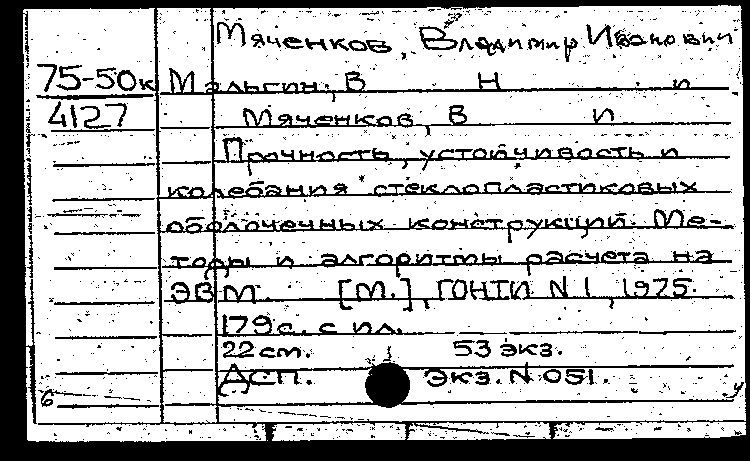 Мяченков, Владимир Иванович
75-50к Мальгин, В Н и
4127 Мяченков, В И
Прочность, устойчивость и
колебания стеклопластиковых
оболочечных конструкций. Ме-
тоды и алгоритмы расчета на
ЭВМ. [М.], ГОНТИ N 1, 1975.
179 с. с ил.
22 см. 53 экз.
ДСП. Экз. N 051.
б у